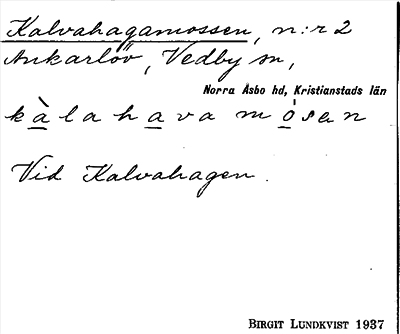 Kalvahagamossen, n:r 2
Ankarlöv, Vedby sn,
Norra Åsbo hd, Kristianstads län
kàlahava mósen
Vid Kalvahagen.
BIRGIT LUNDKVIST 1937